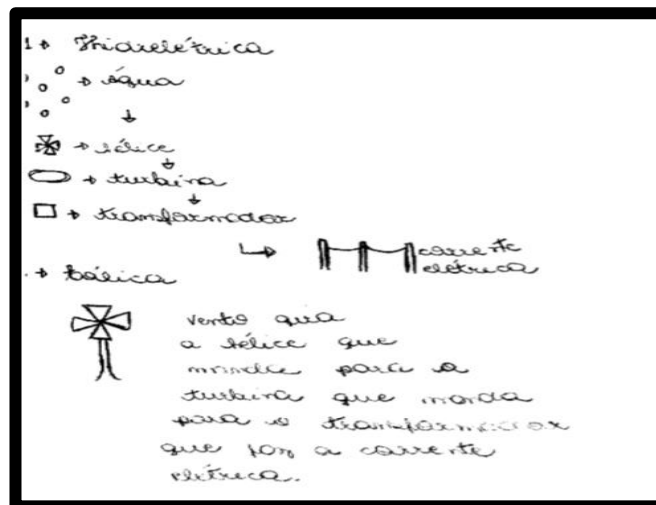 1→ Hidrelétrica
→ água
↓
→ hélice
↓
→ turbina
↓
→ transformador
↳ corrente
elétrica
→ Eólica
vento guia
a hélice que
manda para a
turbina que manda
para o transformador
que faz a corrente
elétrica.